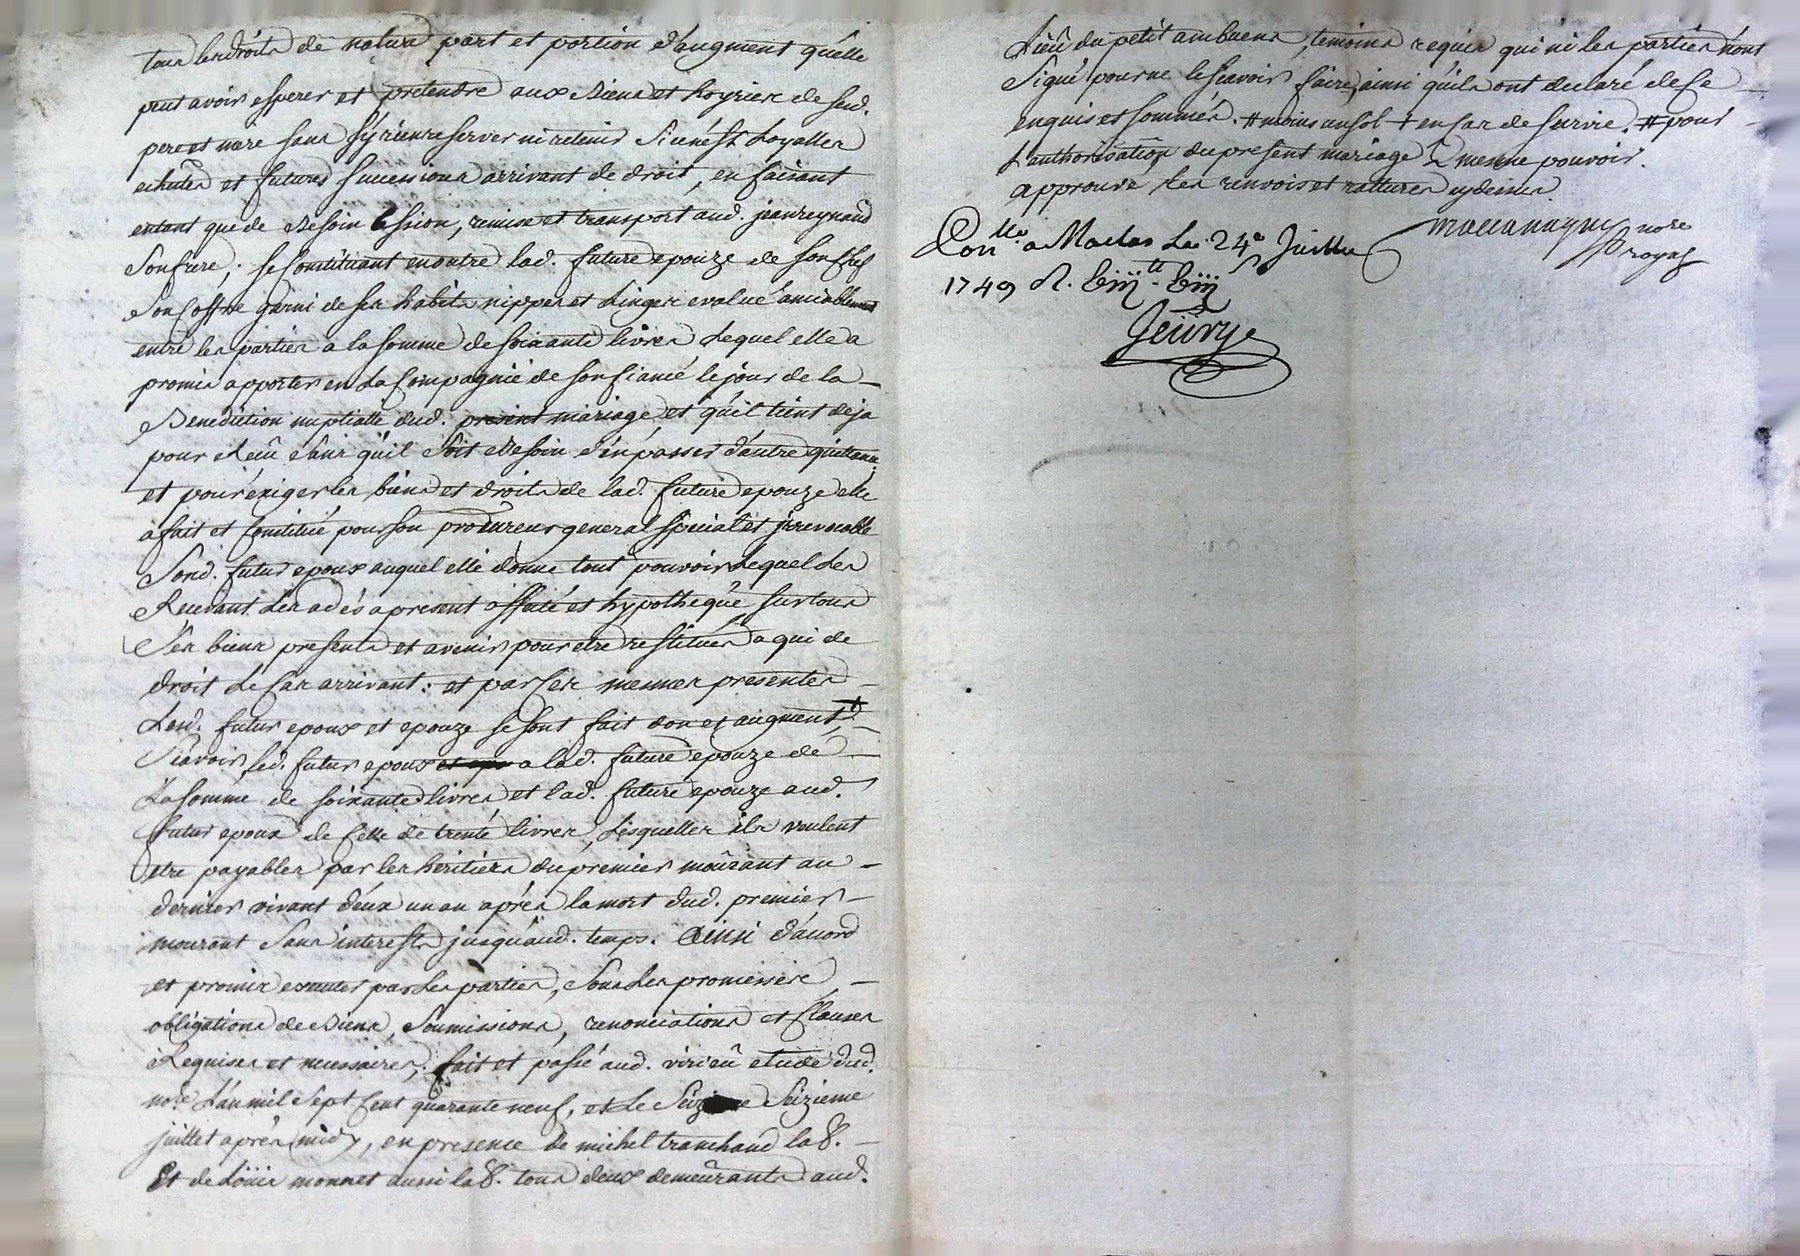 tous les droits de nature part et portion d'augment qu'elle
peut avoir esperer et pretendre aux Biens et hoyries de sesd.
pere et mere sans s'y rien reserver ni retenir si ce n'est Loyalles
echutes et futures successions arrivant de droit, en faisant
entant que de Besoin Cession, remise et transport aud. jean reynaud
son frere; se Constituant en outre lad. future epouze de son chef
son Coffre garni de ses habits nippes et Linges evalué amiablement
entre les parties a la somme de soixante livres Lequel elle a
promis apporter en La Compagnie de son fiancé le jour de la
Benediction nuptialle dud. present mariage et qu'il tient deja
pour Reçû sans qu'il soit Besoin d'en passer d'autre quittance
et pour exiger les biens et droits de lad. future epouze elle
a fait et Constitué pour son procureur general special et jrrevocable
sond. futur epoux auquel elle donne tout pouvoir Lequel Les
Recevant Les a dés a present affecté et hypothequé sur tous
ses biens presents et avenir pour etre restitués a qui de
droit Le Cas arrivant: et par Ces mesmes presentes
Lesd. futur epoux et epouze se sont fait don et augment +
sçavoir led. futur epoux a lad. future epouze de
La somme de soixante livres et lad. future epouze aud.
futur epoux de Celle de trente livres, Lesquelles ils veulent
etre payables par les heritiers du premier moûrant au
dernier vivant d'eux un an aprés la mort dud. premier
mourant sans interests jusqu'aud. temps. Ainsi d'accord
et promis executer par Les parties, sous Les promesses
obligations de Biens, soumissions, renonciations et Clauses
Requises et necessaires; fait et passé aud. virieû etude dud.
nore. L'an mil sept Cent quarante neuf, et Le seizieme
juillet aprés midy, en presence de michel tranchand lab.
Et de Loüis monnet aussi lab. tous deux demeûrants aud.
Lieû du petit ambuens, temoins requis qui ni les parties n'ont
signé pour ne le sçavoir faire, ainsi qu'ils ont declaré de Ce
enquis et sommés. # moins un sol + en Cas de survie. # pour
L'authorisation du present mariage a mesme pouvoir.
approuvé les renvois et rattures cydessus.
nore
royal
Con.lle a Maclas Le 24e Juillet
1749 R.